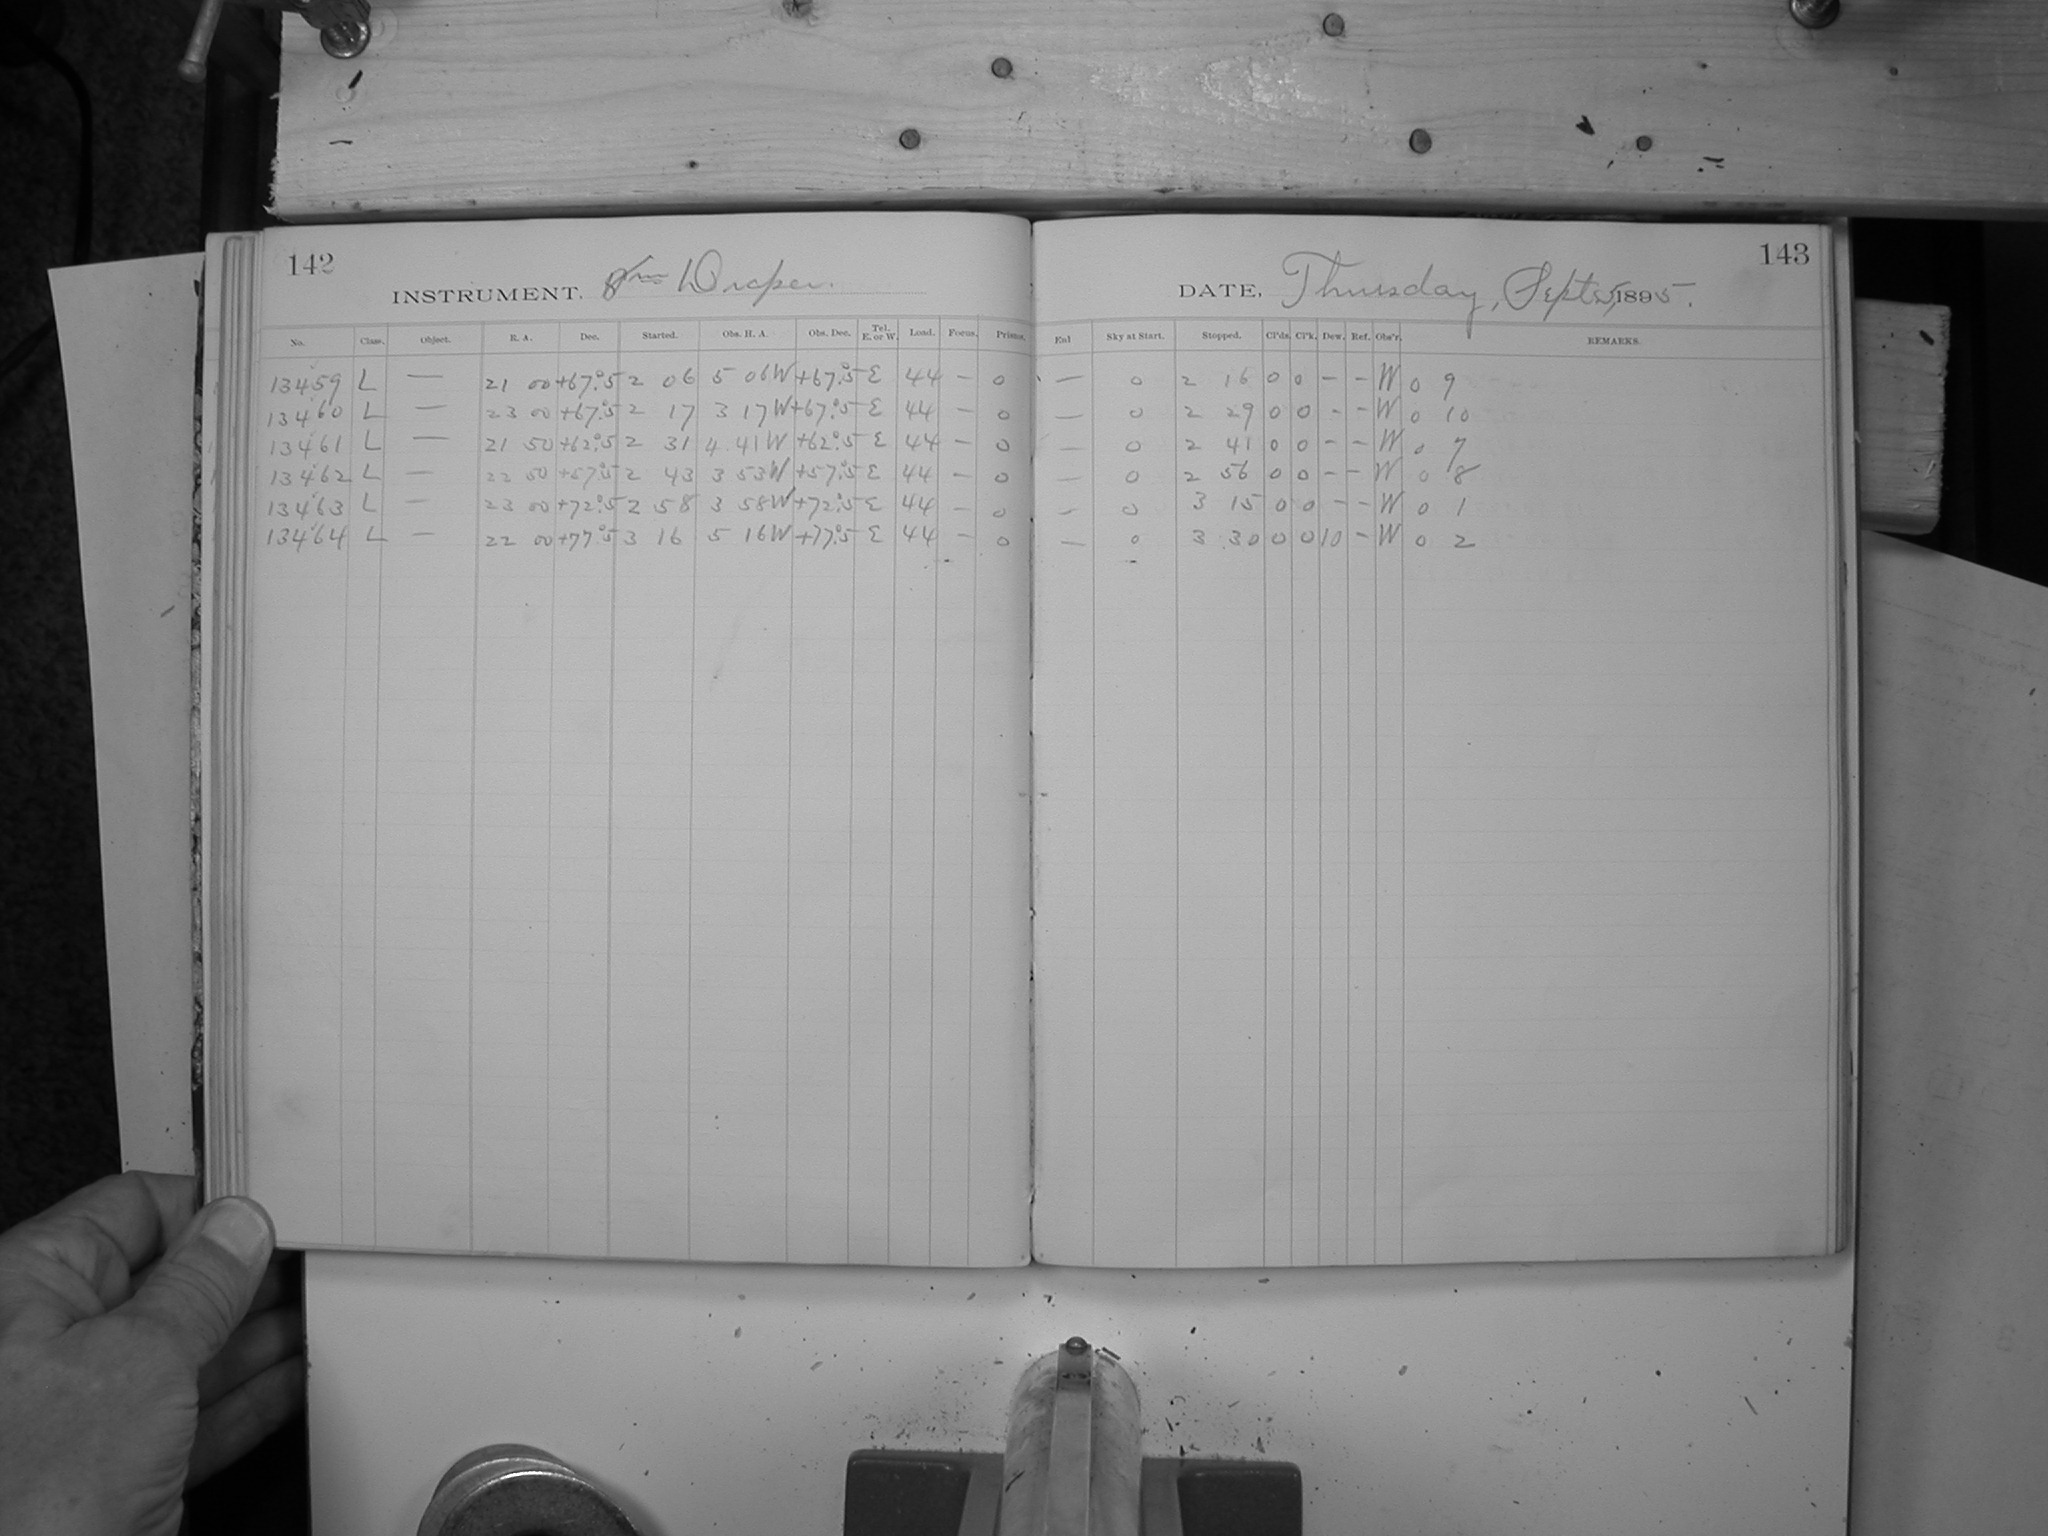 142
INSTRUMENT. 8 in Draper.
No. Class. Object. R. A. Dec. Started. Obs. H. A. Obs. Dec. Tel. E. or W. Load. Focus. Prisms.
13459 L — 21 00 +67.°5 2 06 5 06W +67.°5 E 44 – 0
13460 L — 23 00 +67.°5 2 17 3 17W +67.°5 E 44 – 0
13461 L — 21 50 +62.°5 2 31 4 41W +62.°5 E 44 – 0
13462 L — 22 50 +57.°5 2 43 3 53W +57.°5 E 44 – 0
13463 L — 23 00 +72.°5 2 58 3 58W +72.°5 E 44 – 0
13464 L — 22 00 +77.°5 3 16 5 16W +77.°5 E 44 – 0
143
DATE, Thursday, Sept. 5, 1895.
Sky at Start. Stopped. Cl'ds. Cl'k. Dew. Ref. Obs'r. REMARKS.
— 0 2 16 0 0 – – W 0 9
— 0 2 29 0 0 – – W 0 10
— 0 2 41 0 0 – – W 0 7
— 0 2 56 0 0 – – W 0 8
– 0 3 15 0 0 – – W 0 1
— 0 3 30 0 0 10 – W 0 2